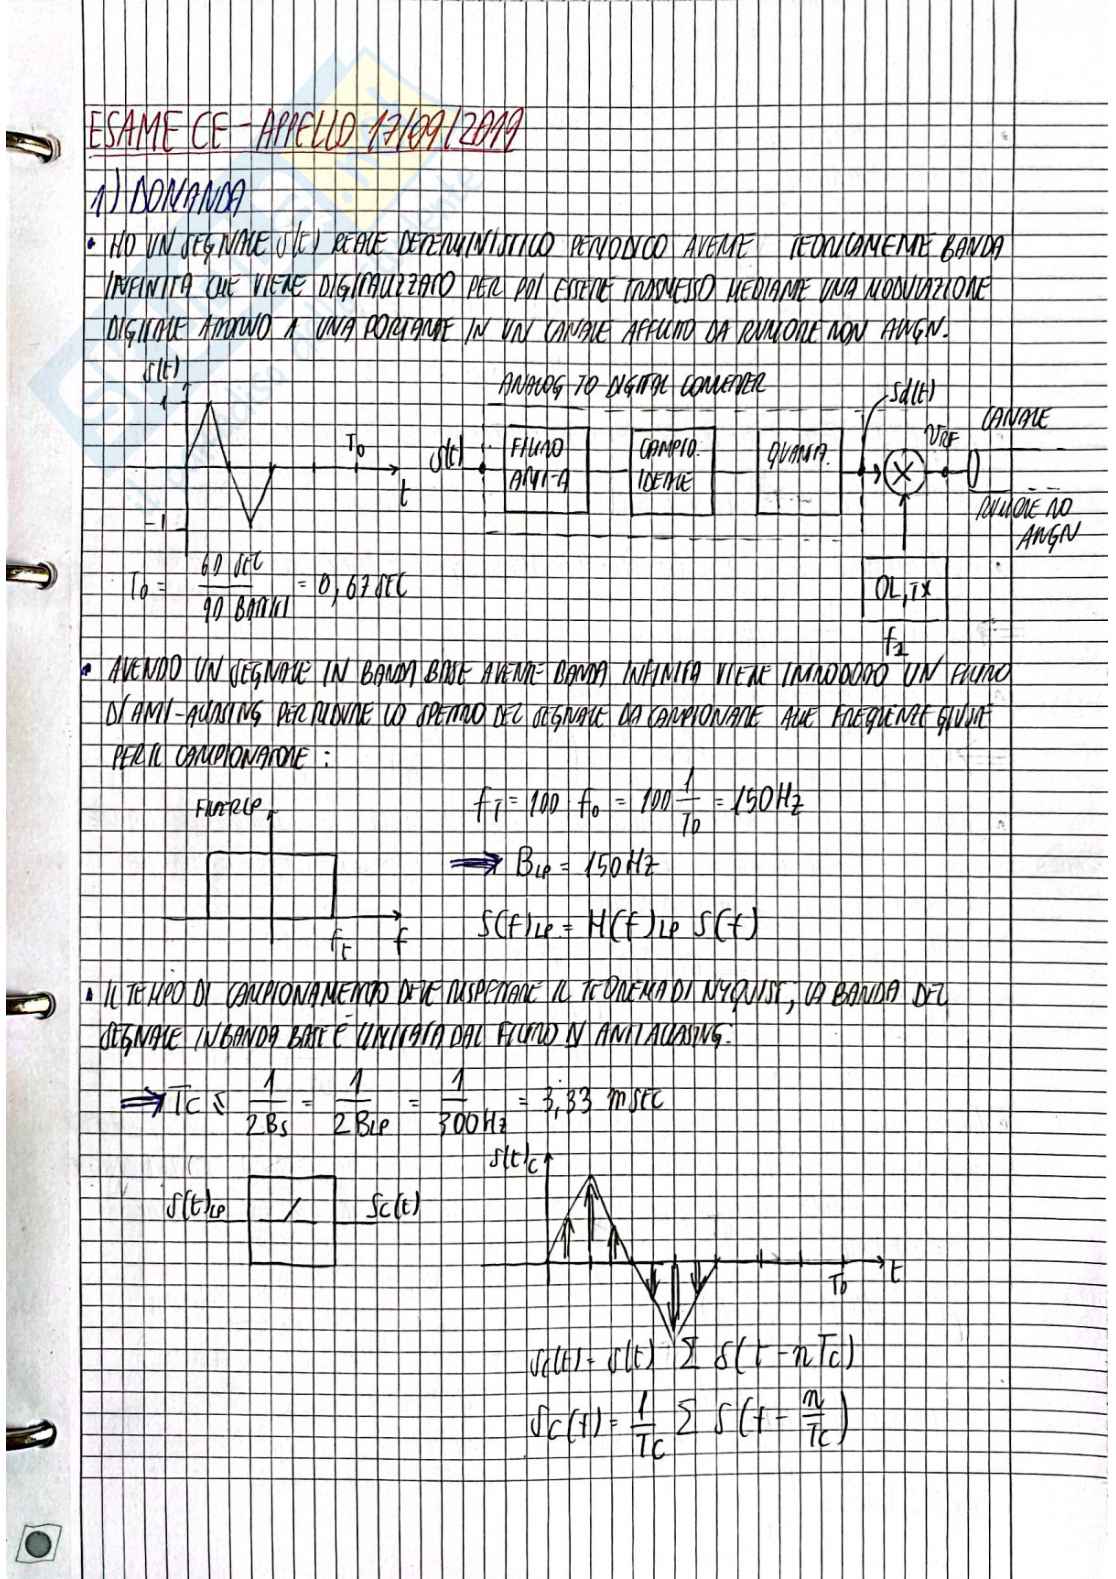 ESAME CE - APPELLO 17/09/2019
1) DOMANDA
• HO UN SEGNALE S(t) REALE DETERMINISTICO PERIODICO AVENTE TEORICAMENTE BANDA
INFINITA CHE VIENE DIGITALIZZATO PER POI ESSERE TRASMESSO MEDIANTE UNA MODULAZIONE
DIGITALE ATTORNO A UNA PORTANTE IN UN CANALE AFFLITTO DA RUMORE NON AWGN.
S(t)
1
-1
T0
t
ANALOG TO DIGITAL CONVERTER
S(t)
FILTRO
ANTI-A
CAMPIO.
IDEALE
QUANTI.
Sd(t)
VRF
CANALE
RUMORE NO
AWGN
OL,TX
T0 = 60 SEC / 90 BATTITI = 0,67 SEC
• AVENDO UN SEGNALE IN BANDA BASE AVENTE BANDA INFINITA VIENE INTRODOTTO UN FILTRO
DI ANTI-ALIASING PER RIDURRE LO SPETTRO DEL SEGNALE DA CAMPIONARE ALLE FREQUENZE GIUSTE
PER IL CAMPIONATORE :
FILTRO LP
ft f
fT = 100 · f0 = 100 1/T0 = 150Hz
⇒ BLP = 150Hz
S(f)LP = H(f)LP S(f)
• IL TEMPO DI CAMPIONAMENTO DEVE RISPETTARE IL TEOREMA DI NYQUIST, LA BANDA DEL
SEGNALE IN BANDA BASE È LIMITATA DAL FILTRO DI ANTI ALIASING:
⇒ TC ≤ 1/2BS = 1/2BLP = 1/300Hz = 3,33 mSEC
S(t)LP
SC(t)
S(t)C
T0
t
SC(t) = S(t) · Σ δ(t - nTC)
SC(f) = 1/TC Σ S(f - n/TC)